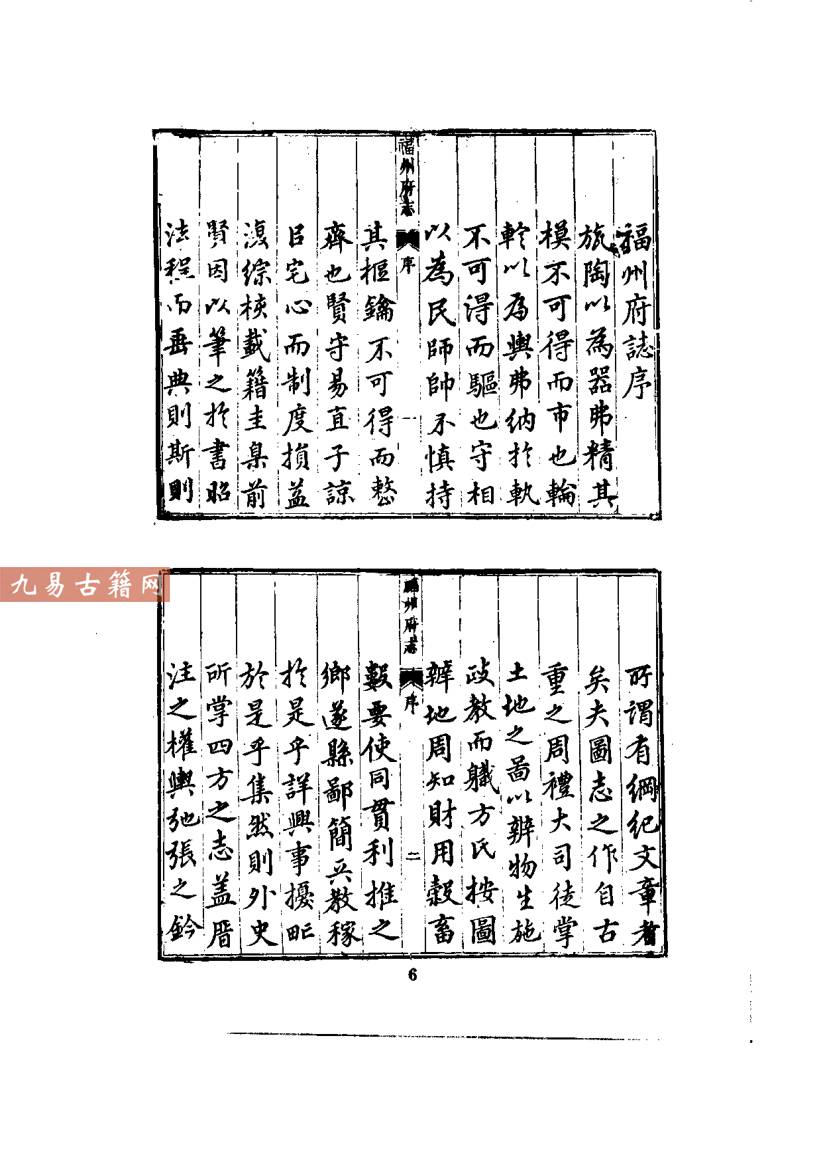 福州府誌序
旊陶以為器弗精其
模不可得而市也輪
軫以為輿弗納於軌
不可得而驅也守相
以為民師帥不慎持
福州府志 序 一
其樞鑰不可得而整
齊也賢守易直子諒
㠯宅心而制度損益
復綜核載籍圭臬前
賢因以筆之於書昭
法程而垂典則斯則
所謂有綱紀文章者
矣夫圖志之作自古
重之周禮大司徒掌
土地之啚以辨物生施
政教而職方氏按圖
辨地周知財用穀畜
福州府志 序 二
數要使同貫利推之
鄉遂縣鄙簡兵教稼
於是乎詳興事擾甿
於是乎集然則外史
所掌四方之志蓋厝
注之權輿弛張之鈐
九易古籍网
6